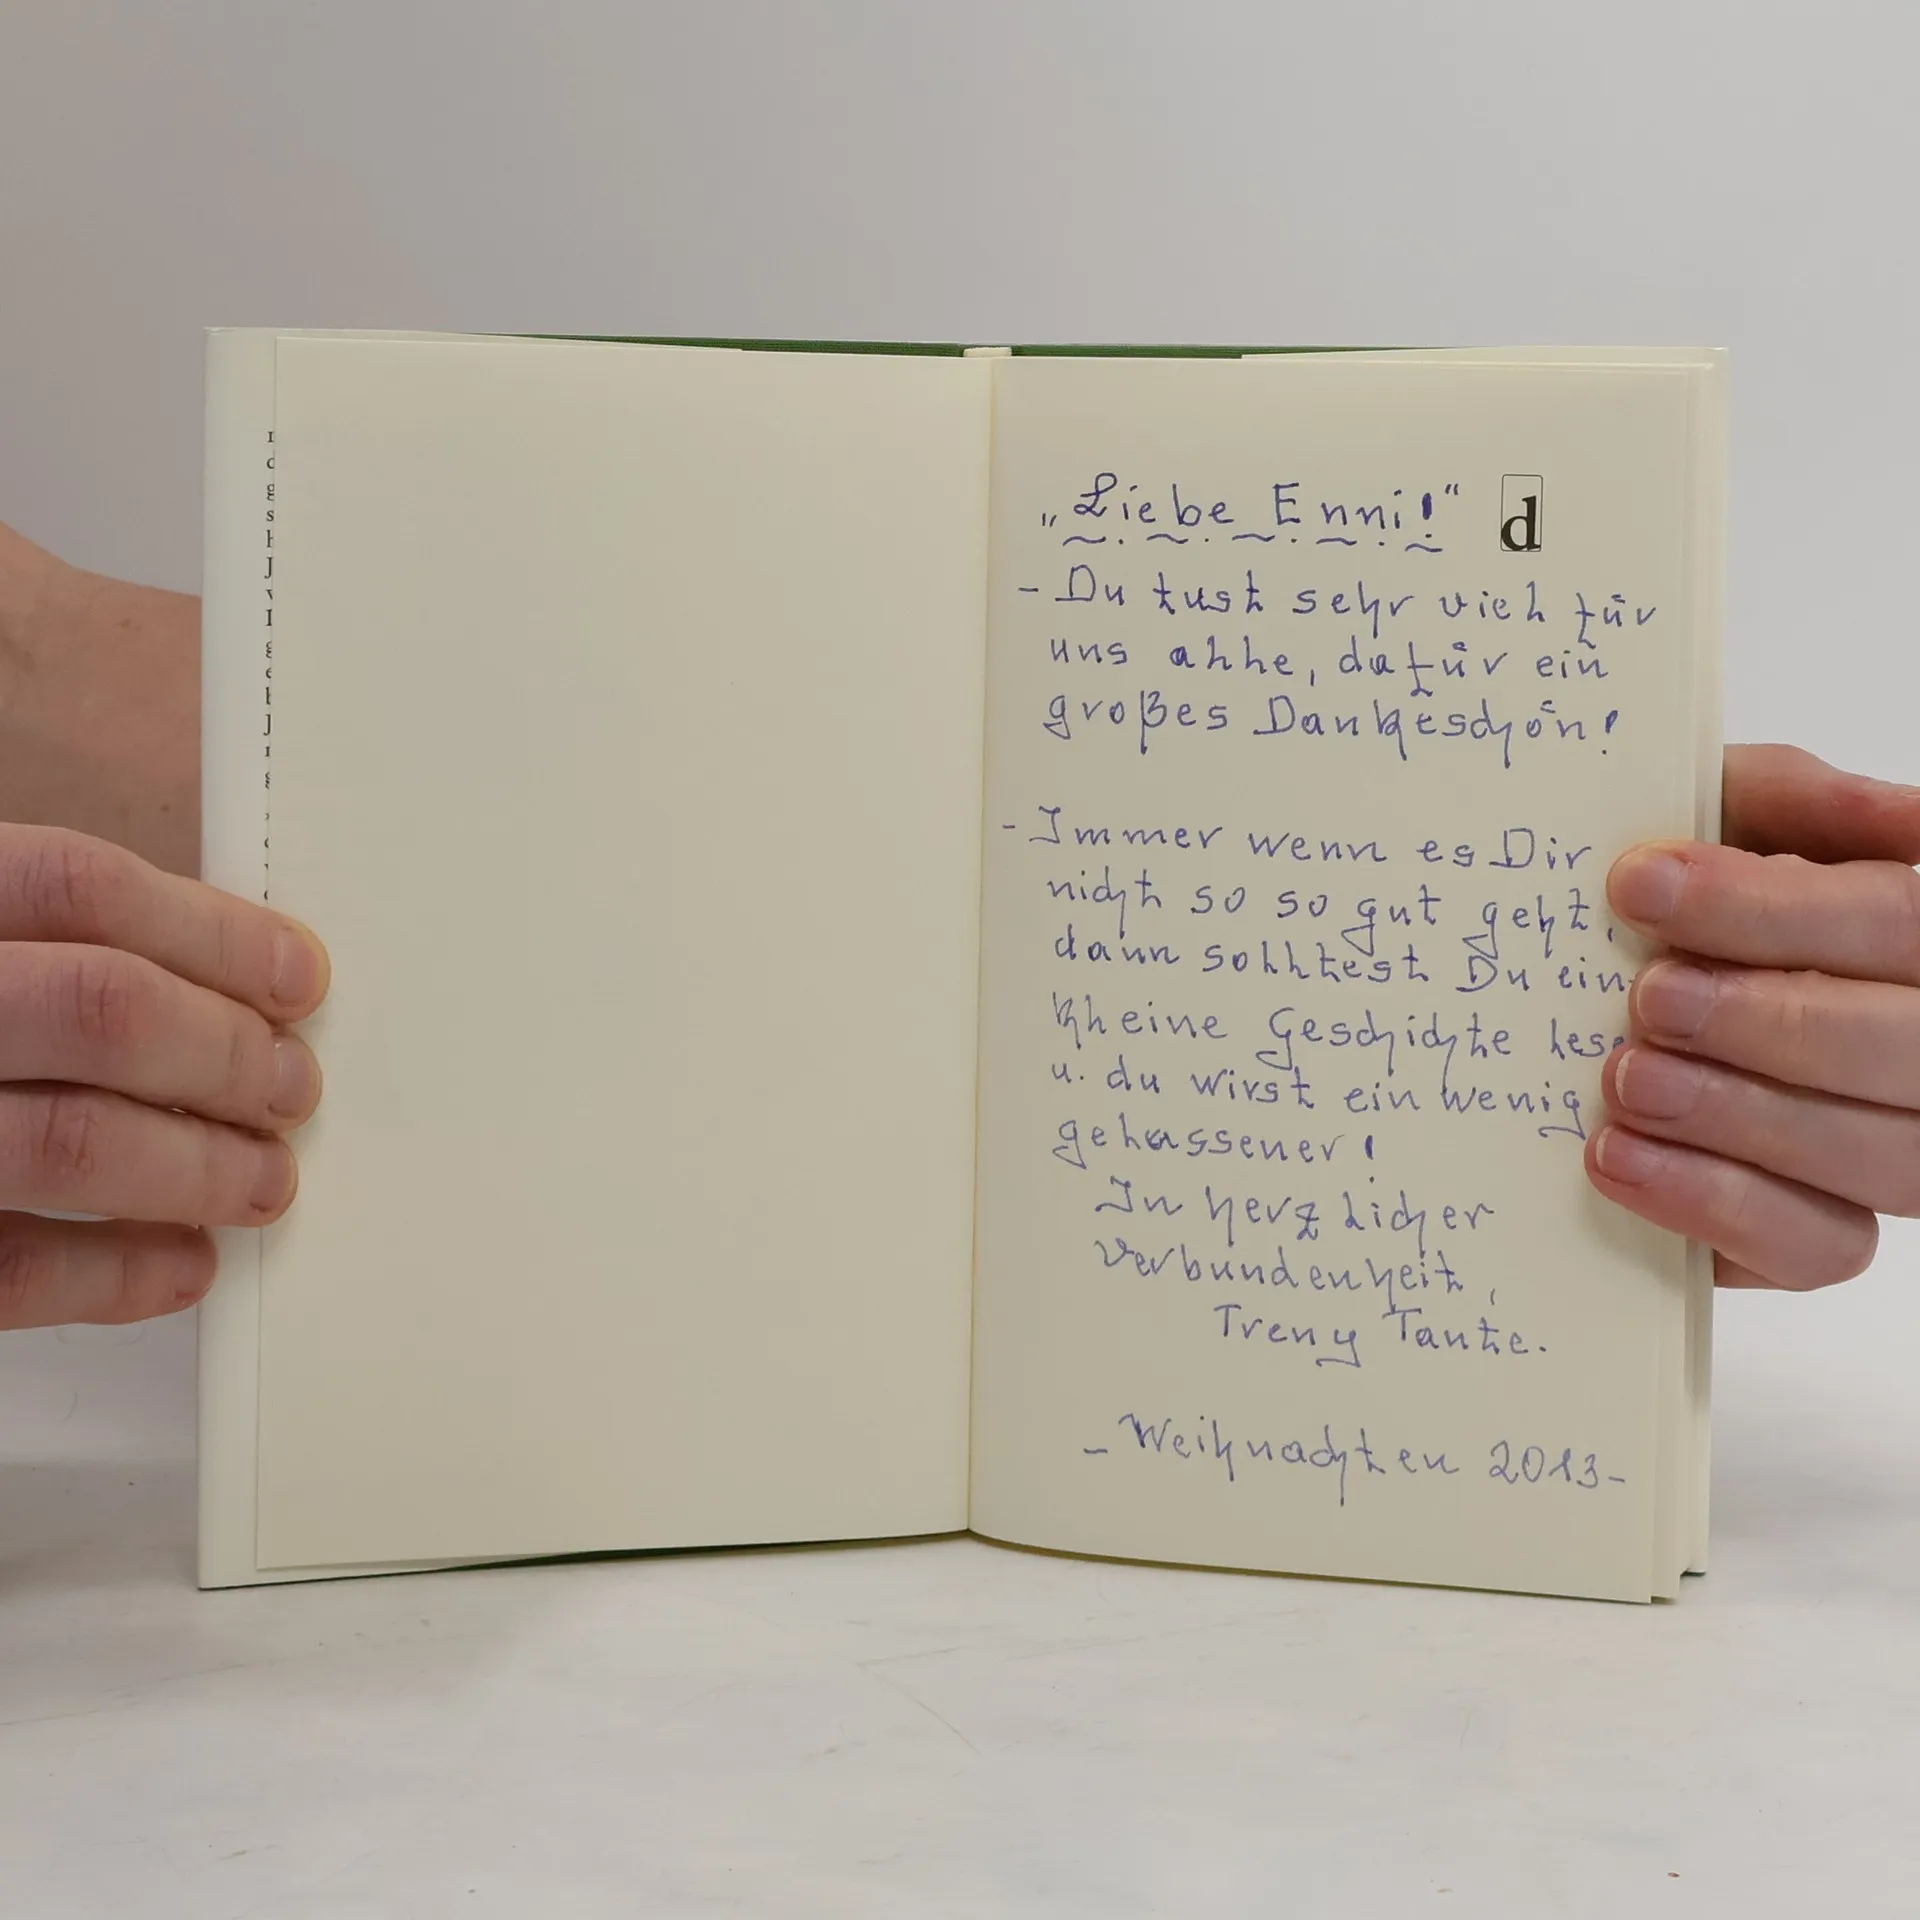 „Liebe Enni!“ d
- Du tust sehr viel für
uns alle, dafür ein
großes Dankeschön!
- Immer wenn es Dir
nicht so so gut geht,
dann solltest Du ein
kleine Geschichte
u. du wirst ein wenig
gelassener!
In herzlicher
Verbundenheit,
Treny Tante.
- Weihnachten 2013-